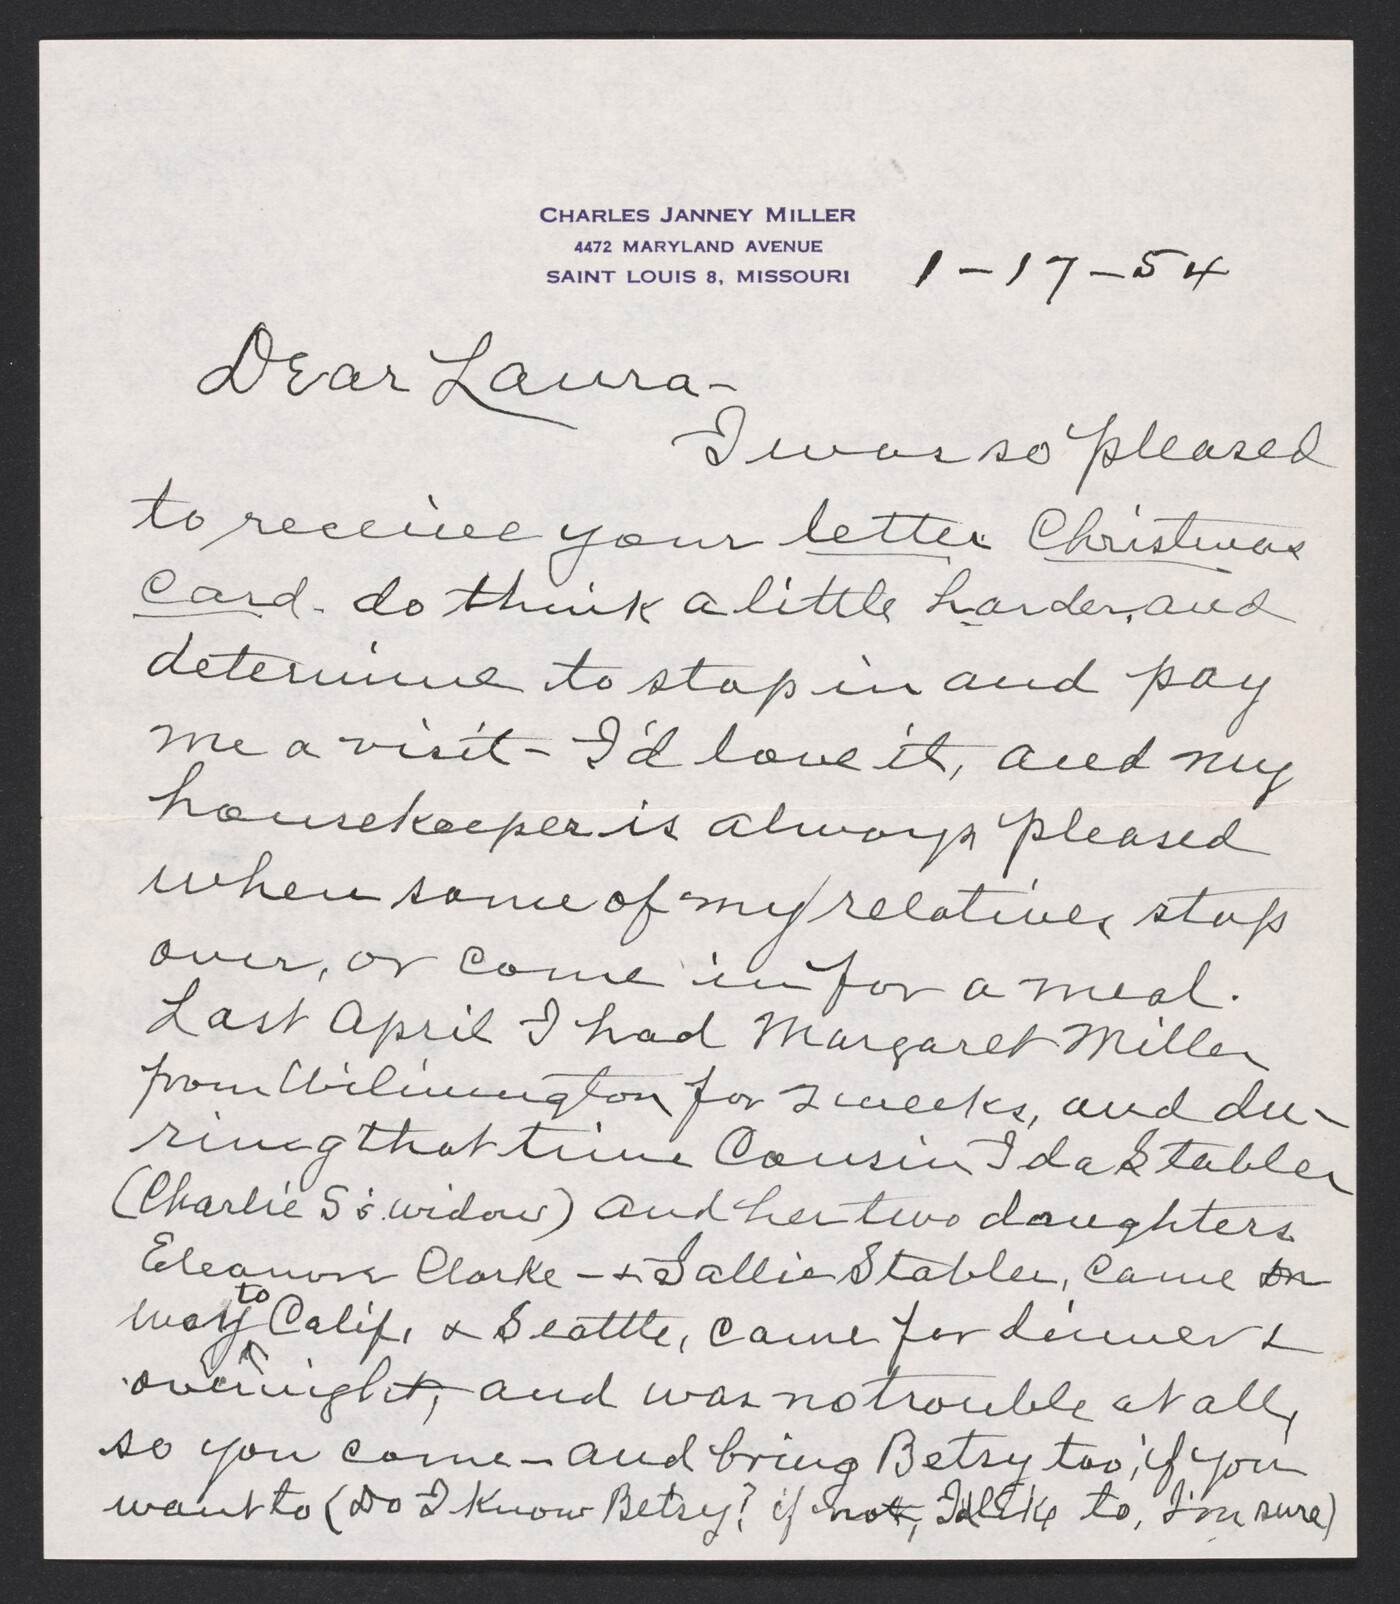 CHARLES JANNEY MILLER
4472 MARYLAND AVENUE
SAINT LOUIS 8, MISSOURI
1-17-54
Dear Laura-
I was so pleased
to receive your letter Christmas
card - do think a little harder, and
determine to stop in and pay
me a visit - I'd love it, and my
housekeeper is always pleased
when some of my relatives stop
over, or come in for a meal.
Last April I had Margaret Miller
from Wilmington for 2 weeks, and du-
ring that time Cousin Ida Stabler
(Charlie S's. widow) and her two daughters
Eleanor Clarke - & Sallie Stabler, came on
way to Calif, & Seattle, came for dinner &
overnight, and was no trouble at all,
so you come - and bring Betsy too, if you
want to (Do I know Betsy? if not, I'd like to, I'm sure)